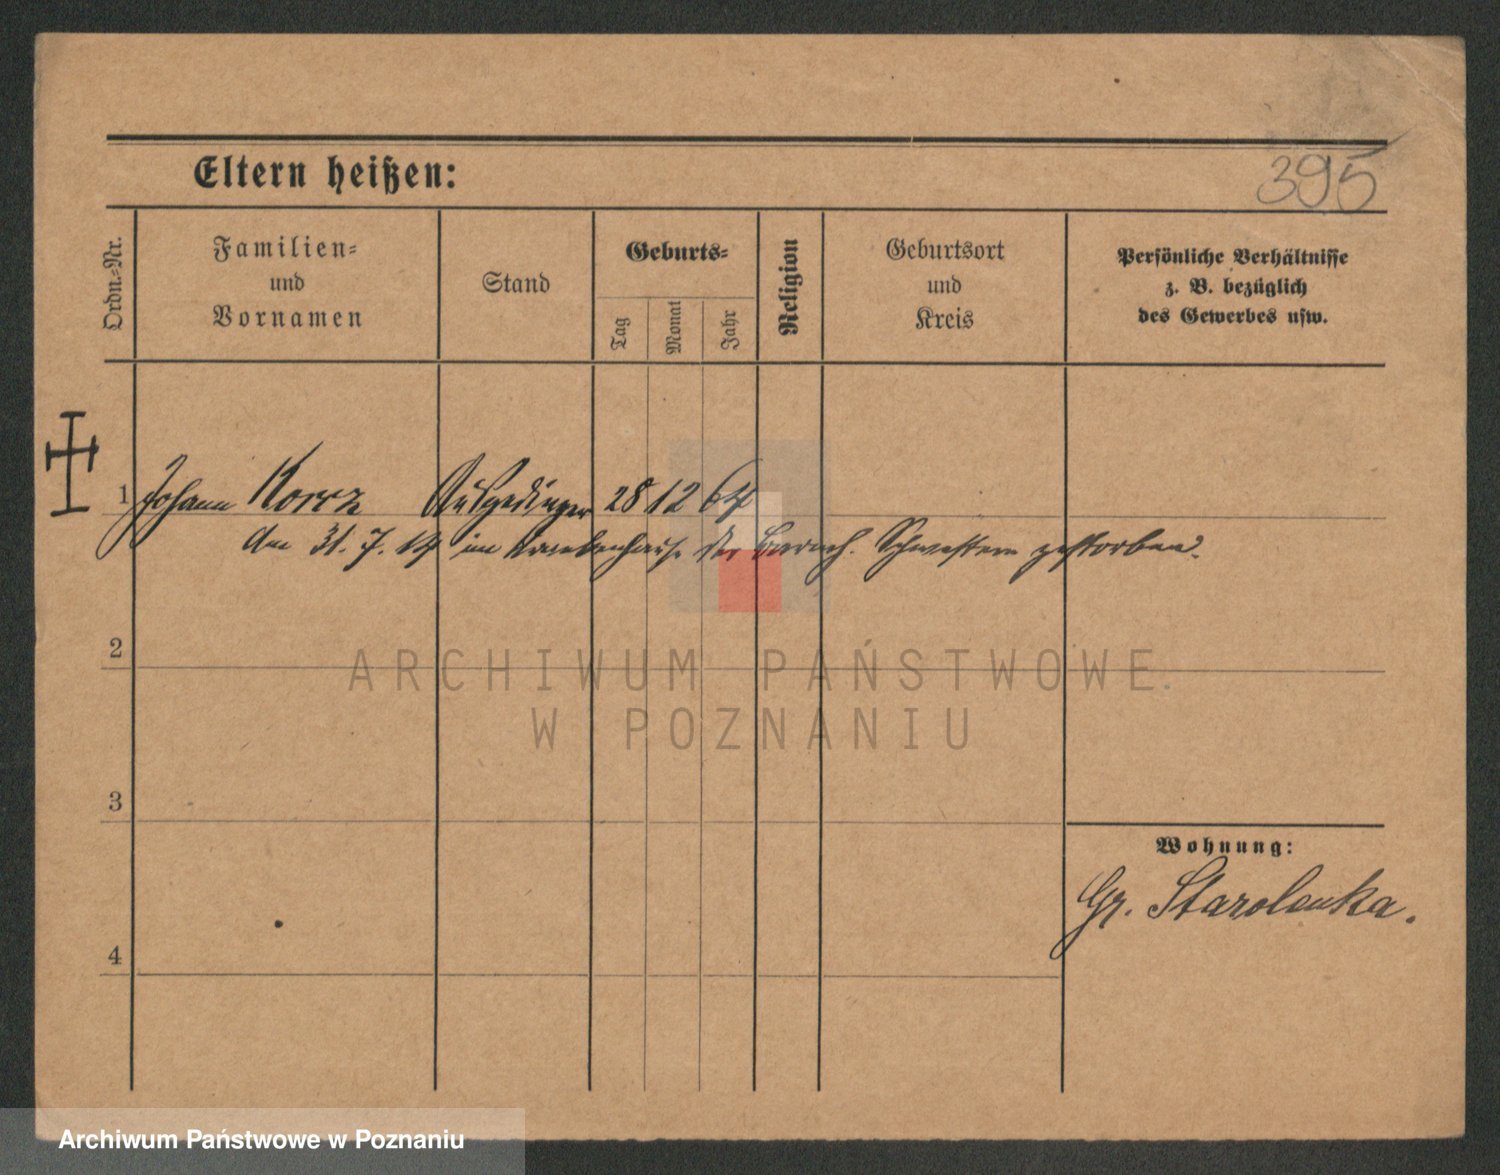 Eltern heißen:
395
Ordn.=Nr.
Familien=
und
Vornamen
Stand
Geburts=
Tag
Monat
Jahr
Religion
Geburtsort
und
Kreis
Persönliche Verhältnisse
z. B. bezüglich
des Gewerbes usw.
1 Johann Ausgedinger 28 12 64
Am 31. 7. 14 im Krankenhause der Barmh. Schwestern gestorben.
2
ARCHIWUM PAŃSTWOWE
W POZNANIU
3
Wohnung:
Gr. Starolenka.
4
Archiwum Państwowe w Poznaniu